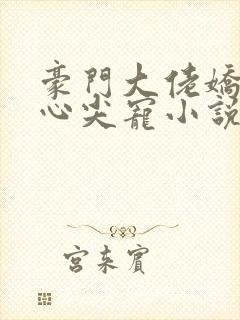 豪門大佬嬌
心尖寵小說
宮來賓